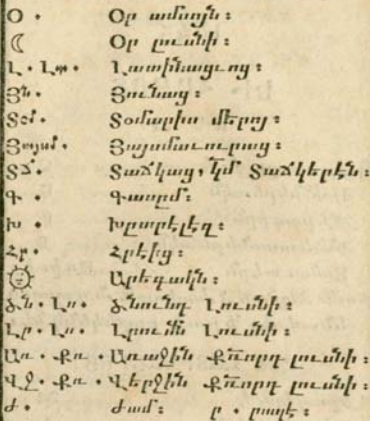 Օ · Օր ամսոյն ։
☾ Օր լուսնի ։
Լ · Լտ · Լատինացւոց ։
Յն · Յունաց ։
Տօմ · Տօմարիս մերոյ ։
Յայսմ · Յայսմաւուրաց ։
ՏՃ · Տաճկաց, կմ Տաճկերէն ։
Գ · Գասըմ ։
Խ · Խըտըրէլէզ ։
Հր · Հրէից ։
☼ Արեգակն ։
Ծն · Լս · Ծնունդ Լուսնի ։
Լր · Լս · Լրումն Լուսնի ։
Առ · Քռ · Առաջին Քռորդ լուսնի ։
Վջ · Քռ · Վերջին Քռորդ լուսնի ։
Ժ · Ժամ ։ ր · րոպէ ։